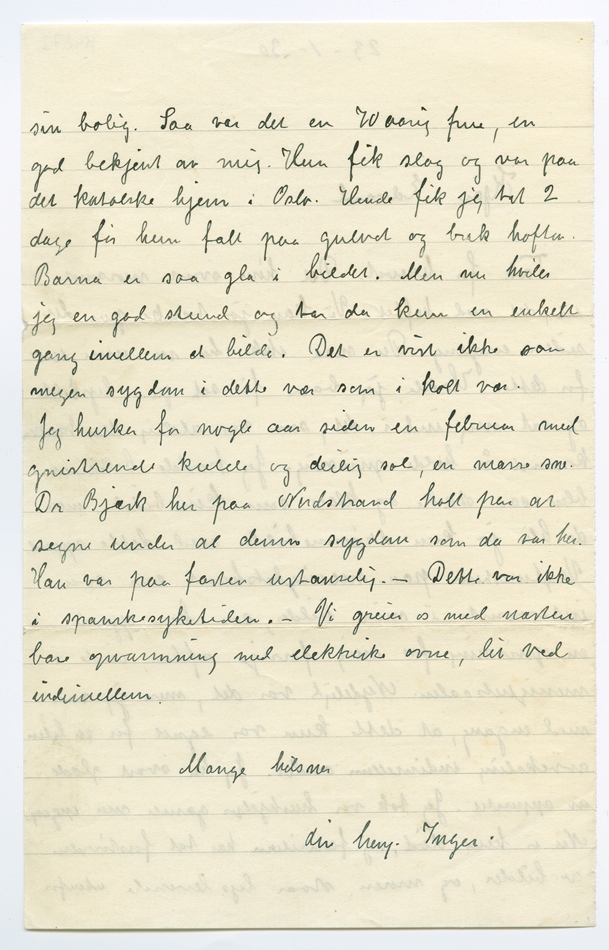 sin bolig. Saa var det en 70 aarig frue, en
god bekjent av mig. Hun fik slag og var paa
det katolske hjem i Oslo. Hende fik jeg tat 2
dage før hun falt paa gulvet og brak hofta.
Barna er saa gla i bildet. Men nu hviler
jeg en god stund og tar da kun en enkelt
gang imellem et bilde. Det er vist ikke saa
megen sygdom i dette vær som i kolt vær.
Jeg husker for nogle aar siden en februar med
gnistrende kulde og deilig sol, en masse sne.
Dr Bjørk her paa Nordstrand holt paa at
segne under al denne sygdom som da var her.
Han var paa farten ustanselig. – Dette var ikke
i spanskesyketiden. – Vi greier os med næsten
bare opvarmning med elektriske ovne, lit ved
indimellem.
Mange hilsner
din heng. Inger.